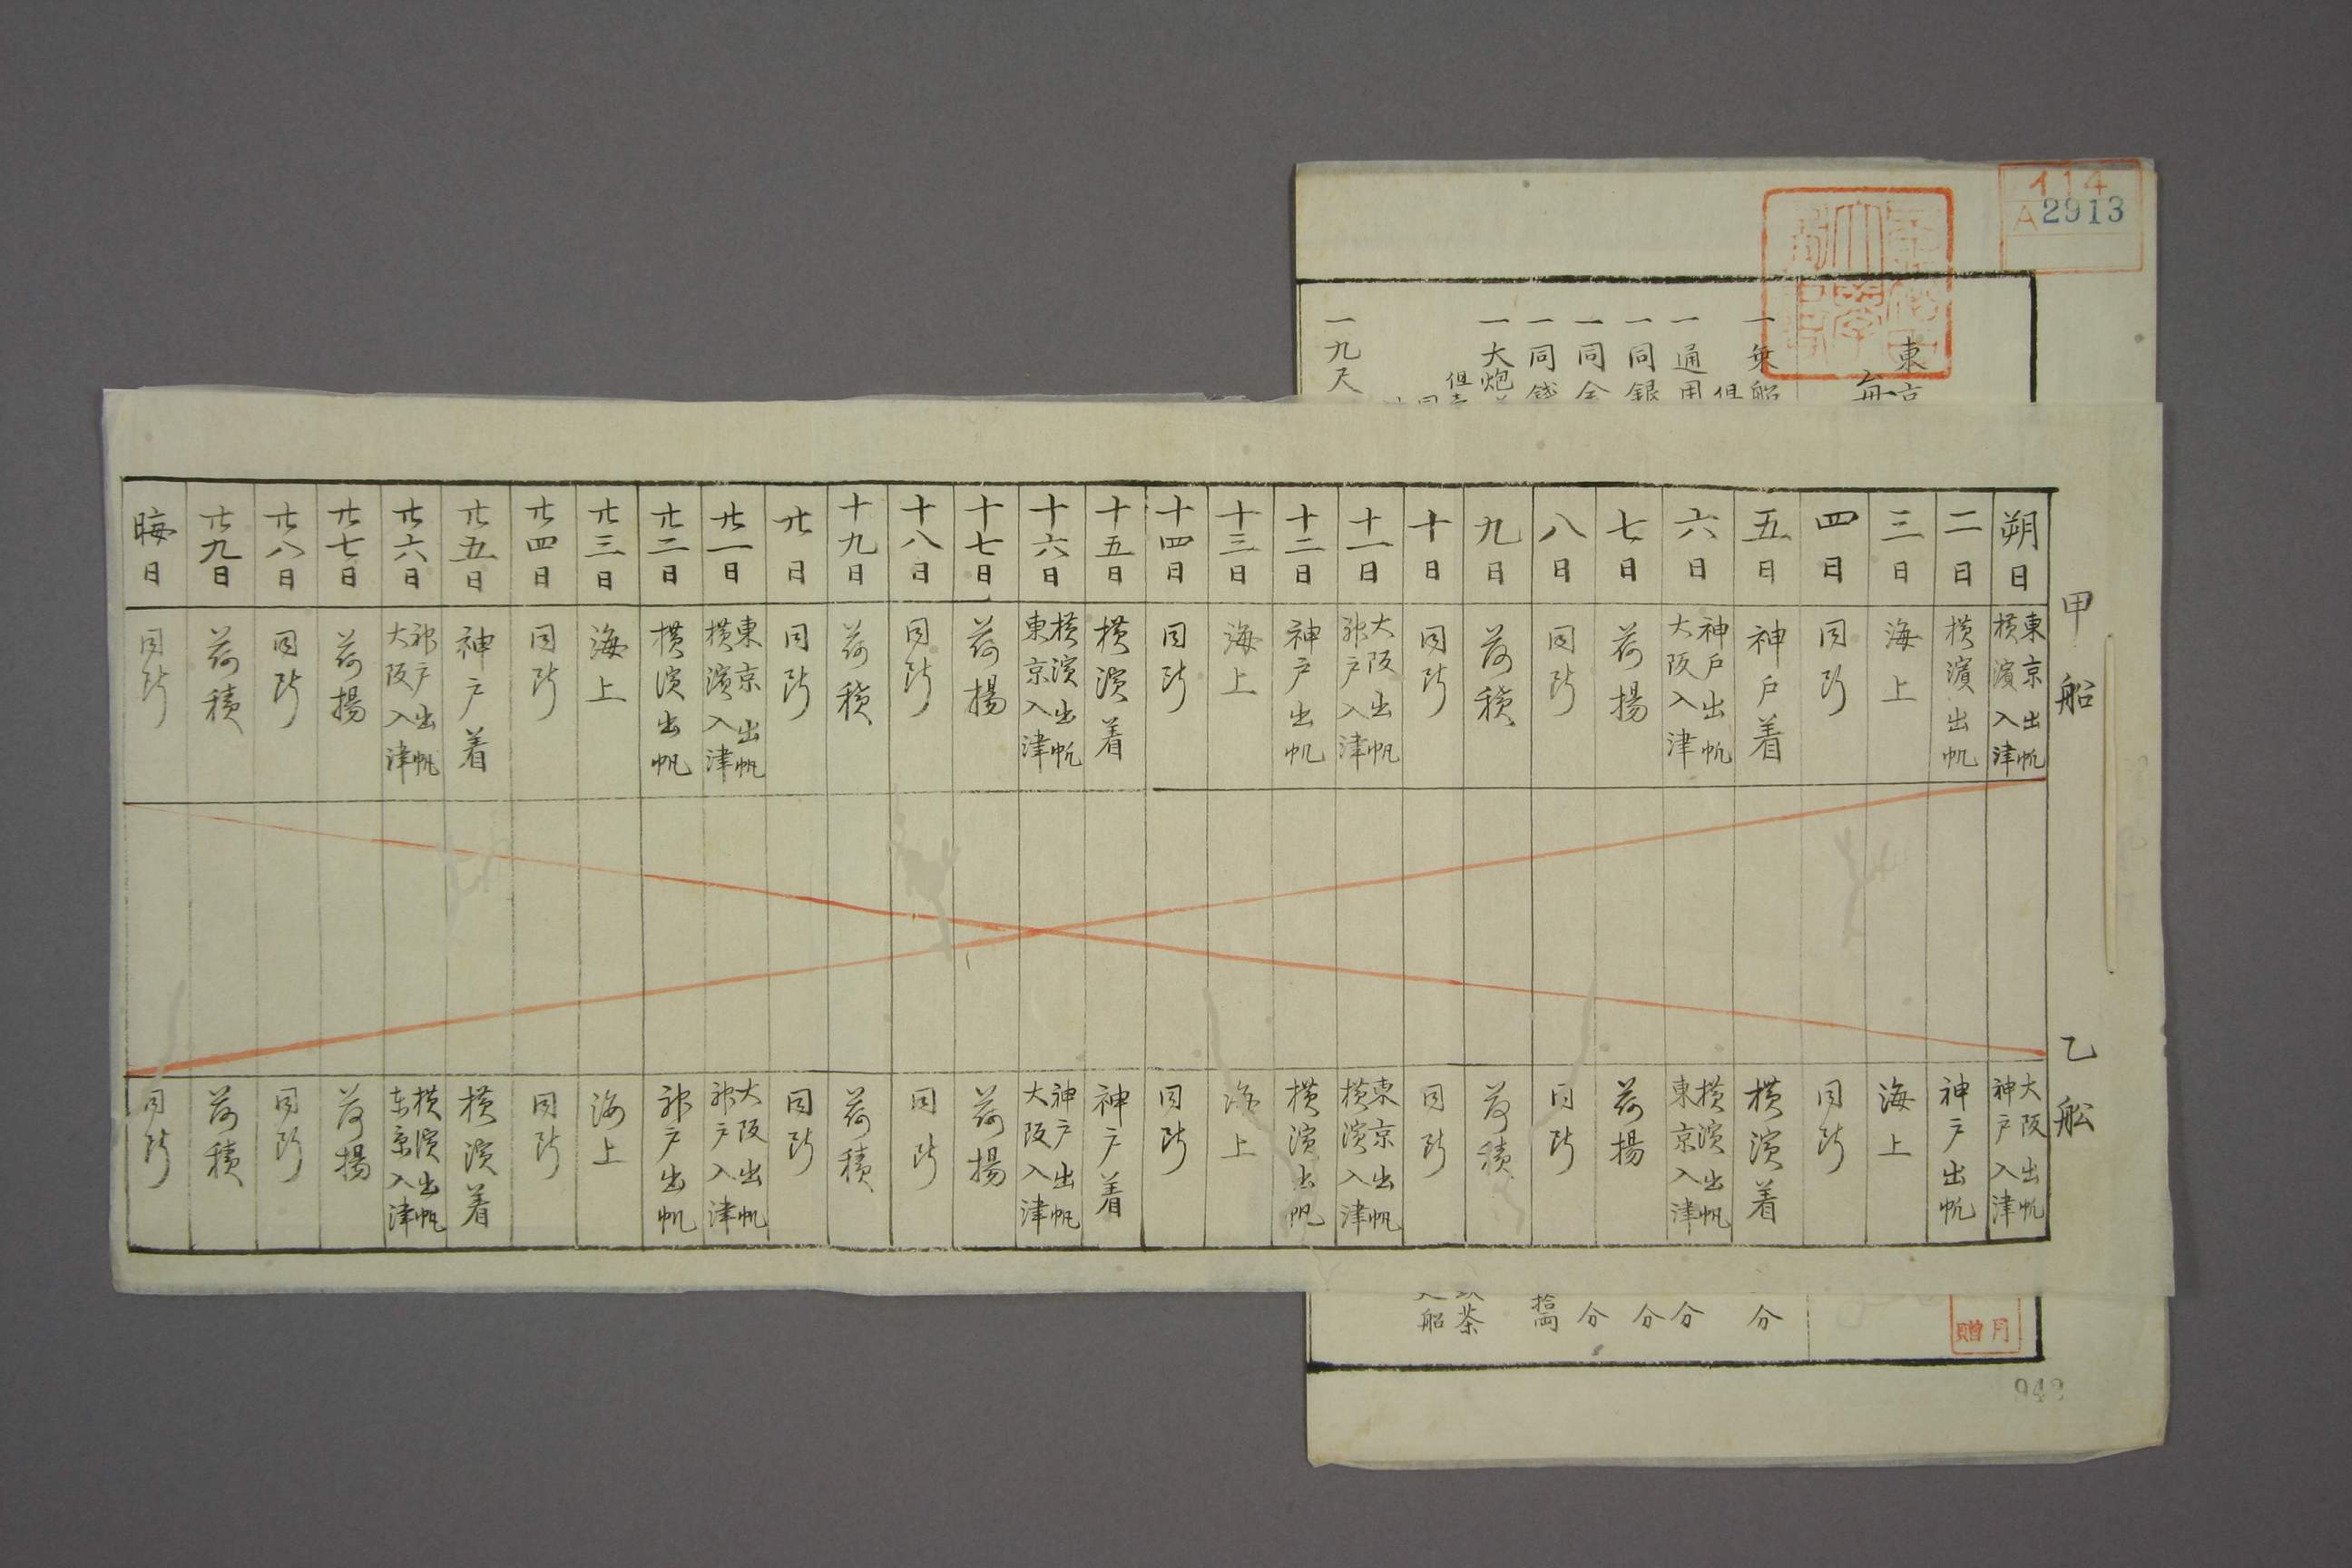 114
A2913
東京
一乗船
但
一通用
一同銀
一同金
一同銭
一大炮
但
一九尺
甲船
乙船
朔日
東京出帆
横濱入津
大阪出帆
神戸入津
二日
横濱出帆
神戸出帆
三日
海上
海上
四日
同断
同断
五日
神戸着
横濱着
六日
神戸出帆
大阪入津
横濱出帆
東京入津
七日
荷揚
荷揚
八日
同断
同断
九日
荷積
荷積
十日
同断
同断
十一日
大阪出帆
神戸入津
東京出帆
横濱入津
十二日
神戸出帆
横濱出帆
十三日
海上
海上
十四日
同断
同断
十五日
横濱着
神戸着
十六日
横濱出帆
東京入津
神戸出帆
大阪入津
十七日
荷揚
荷揚
十八日
同断
同断
十九日
荷積
荷積
廿日
同断
同断
廿一日
東京出帆
横濱入津
大阪出帆
神戸入津
廿二日
横濱出帆
神戸出帆
廿三日
海上
海上
廿四日
同断
同断
廿五日
神戸着
横濱着
廿六日
神戸出帆
大阪入津
横濱出帆
东京入津
廿七日
荷揚
荷揚
廿八日
同断
同断
廿九日
荷積
荷積
晦日
同断
同断
分
分
分
分
拾両
茶
船
月
贈
942